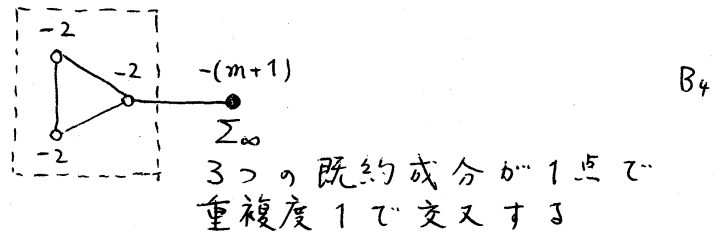 -2
-2
-(m+1)
B₄
-2
Σ∞
3つの既約成分が1点で
重複度1で交叉する